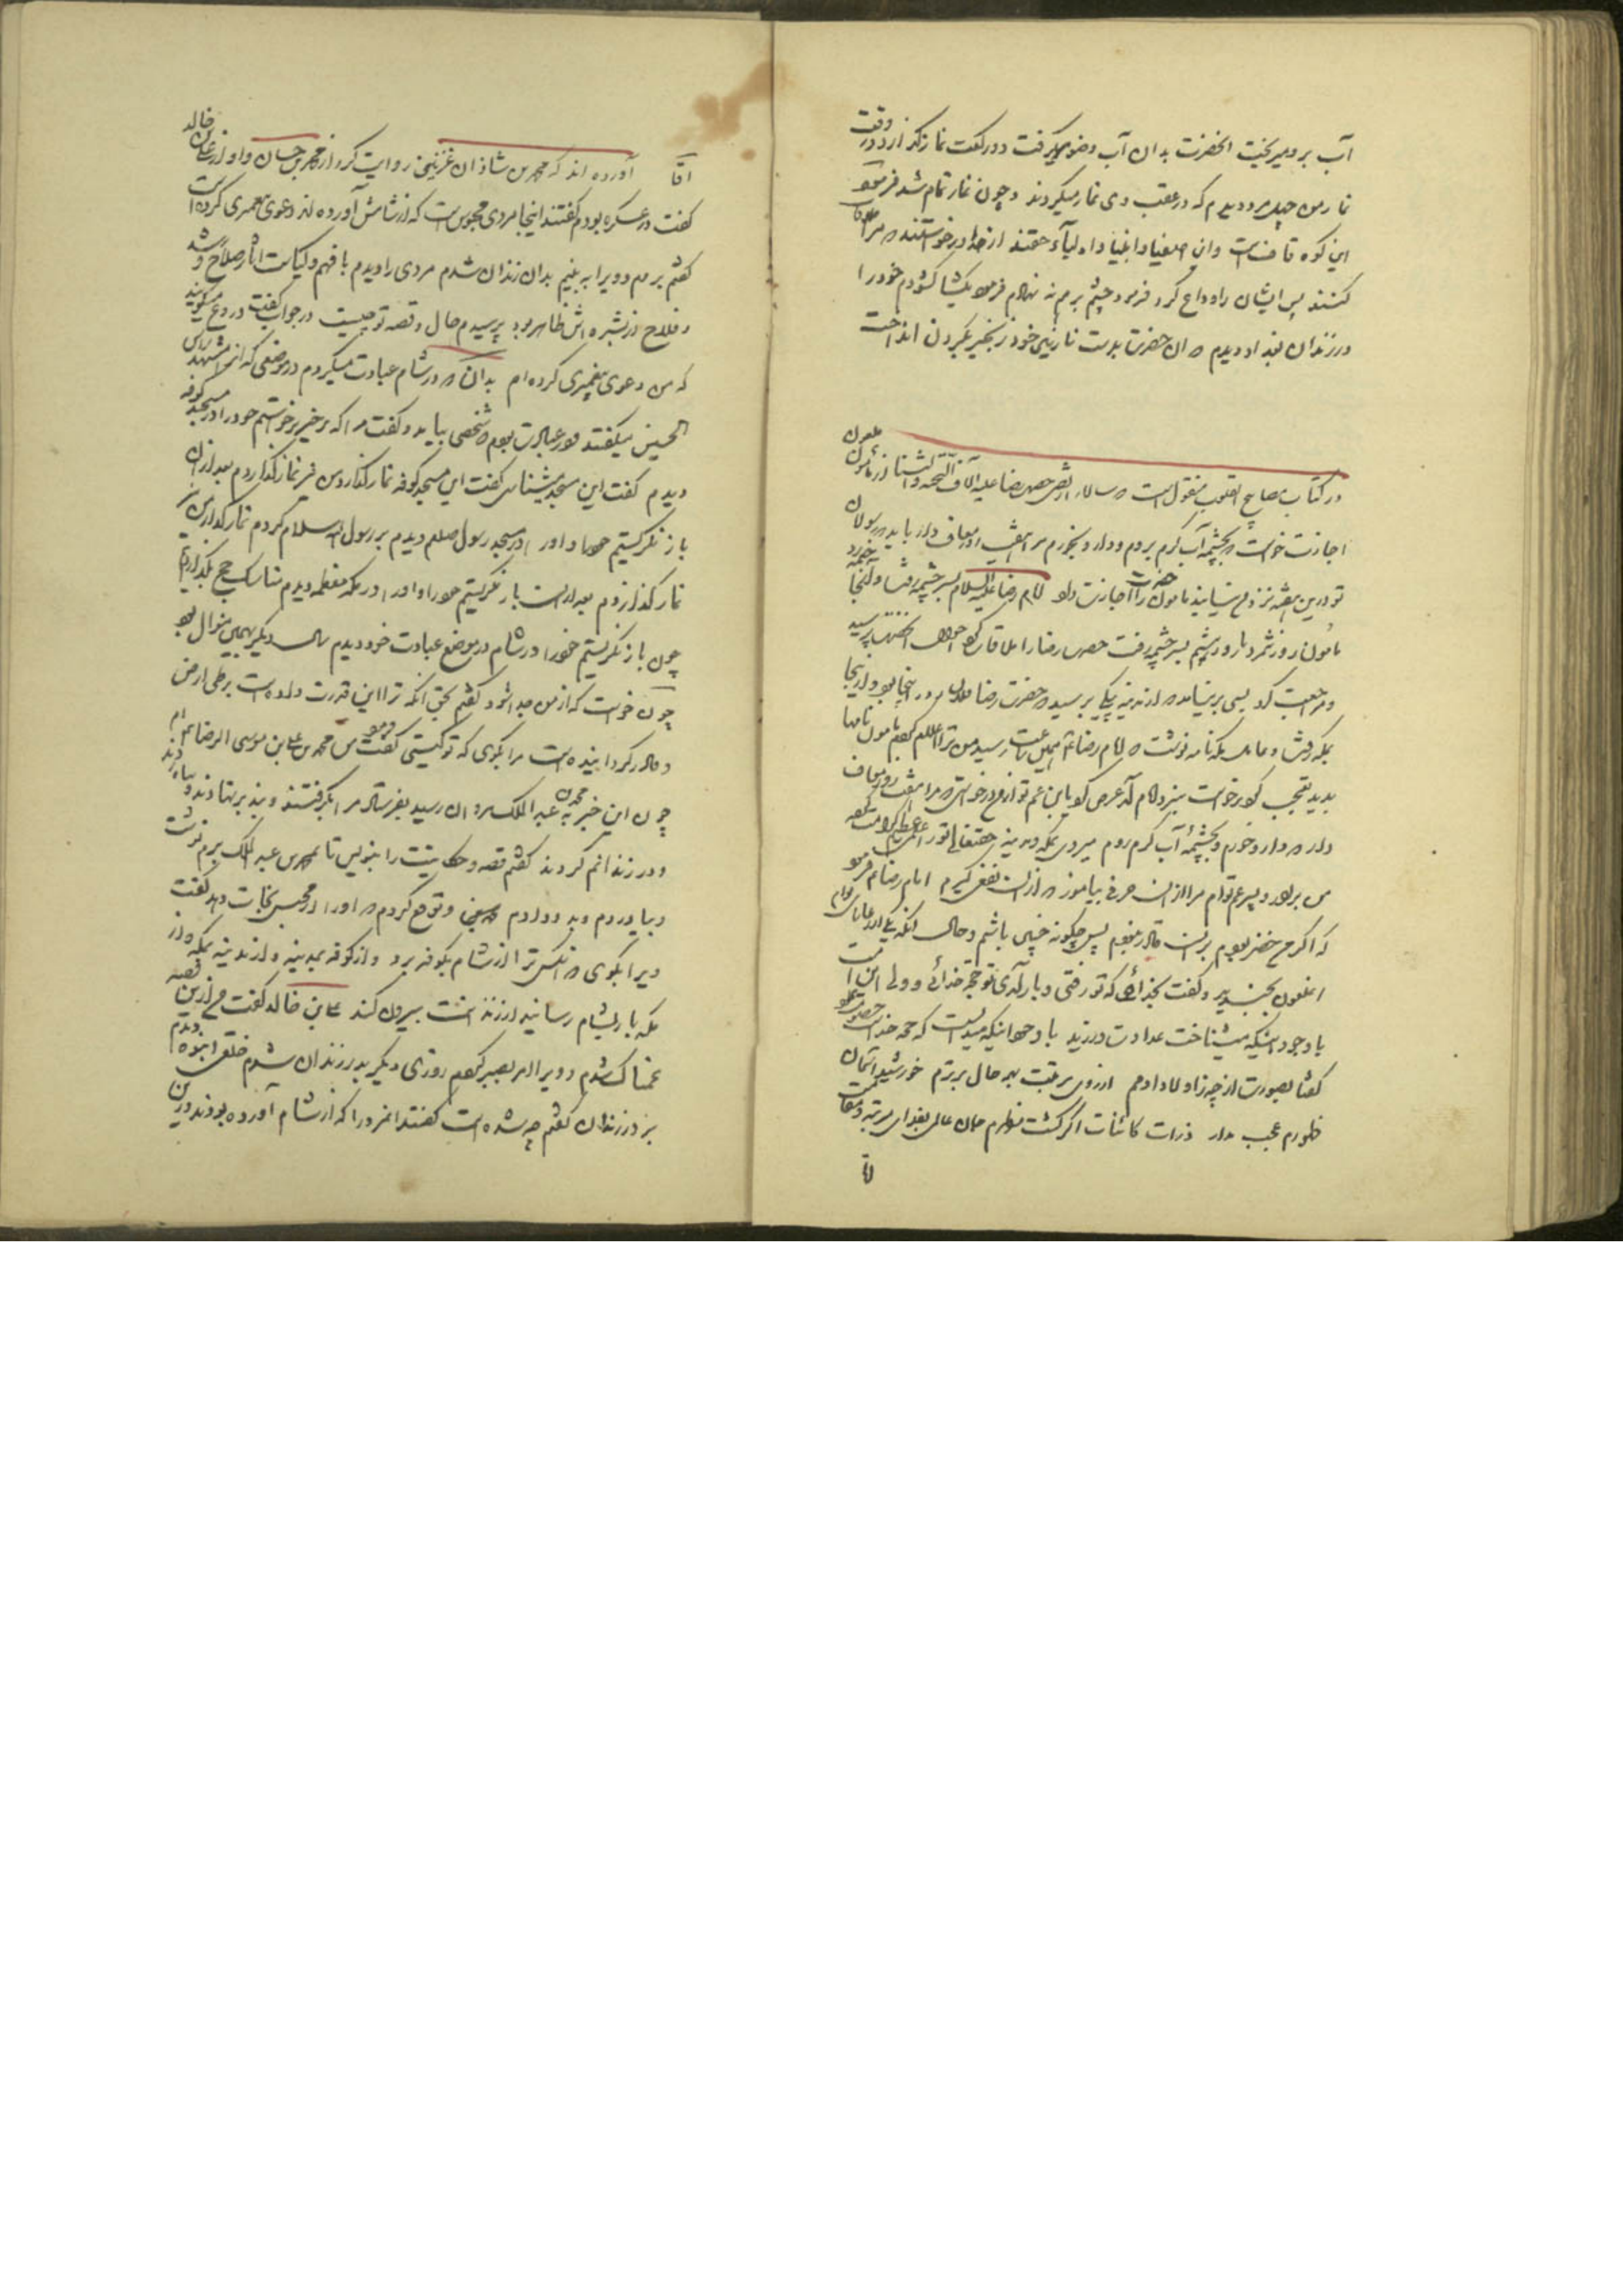 آب برو میریخت انحضرت بدان آب وضو میگرفت دو رکعت نماز بگذارد در وقت
نماز من چهل مرد دیدم که در عقب وی نماز میکردند و چون نماز تمام شد فرمود
این کوه قافست و این اصفیا و انبیا و اولیاء حقند از خدا درخواستند که مرا
کنند پس ایشان را وداع کرد فرمود چشم بر هم نه نهادم فرمود بگشا گشودم خود را
در زندان بغداد دیدم که ان حضرت بدست نازنین خود زنجیر بگردن انداخت
در کتاب مصابیح القلوب منقول است که سالار از حضرت رضا علیه آلاف التحیه والثنا از مأمون ملعون
اجازت خواست که بچشمه آب گرم بروم و دارو بخورم مرا هفته معاف دار باید که رسولان
تو درین هفته نزد من نیایند مامون حضرت را اجازت داد امام رضا علیه السلام بسر چشمه رفت و آنجا
مأمون روز شمرد تا روز هشتم بسر چشمه رفت حضرت رضا را ملاقات کرد احوال پرسید
و مراجعت کرد بسی بر نیامد که از مدینه پیکی برسید که حضرت رضا روز اینجا بود و از اینجا
بمکه رفت و عامل مکه نامه نوشت که امام رضا رسید من ترا اعلام کردم مامون نامها
بدید تعجب کرد برخواست بنزد امام آمد عرض کرد یابن عم تو از من درخواستی که مرا هفت روز معاف
دار که دارو خورم و بچشمه آب گرم روم میروی بمکه و مدینه حقتعالی تو را کرامت کرده
من برادر و پسر عم توام مرا از ان حرفی بیاموز که از ان نفعی گیرم امام رضا فرمود
که اگر من خضر بودم بر ان قادر نبودم پس چگونه چنین باشم و حال انکه یکی از رعایای توام
انملعون بخندید و گفت بخدائی که تو رفتی و باز آمدی تو حجة خدائی و ولی این امت
با وجود اینکه میشناخت عداوت ورزید با وجود اینکه میدانست که حجه خداست
گفتا بصورت ار چه ز اولاد آدمم از روی مرتبت بهر حال برترم خورشید آسمان
ظهورم عجب مدار ذرات کائنات اگر گشت مظهرم
اقا آورده اند که محمد بن شاذان غزنینی روایت کرد از محمد بن حسان و او از علی بن خالد
گفت در عسکره بودم گفتند اینجا مردی محبوس است که از شامش آورده اند دعوی پیغمبری کرده است
گفتم بروم و ویرا به بینم بدان زندان شدم مردی را دیدم با فهم و کیاست اثار صلاح و رشد
و فلاح از بشره اش ظاهر بود پرسیدم حال و قصه تو چیست در جواب گفت دروغ میگویند
که من دعوی پیغمبری کرده ام بدان که در شام عبادت میکردم در موضعی که انرا مشهد راس
الحسین میگفتند در عبادت بودم که شخصی بیامد و گفت مرا که برخیز برخواستم خود را در مسجد کوفه
دیدم گفت این مسجد میشناسی گفت این مسجد کوفه نماز گذارد من نیز نماز گذاردم بعد از ان
باز نگریستم خود را و او را در مسجد رسول صلعم دیدم بر رسول الله سلام کردم نماز گذارد من نیز
نماز گذاردم بعد از ان باز نگریستم خود را و او را در مکه معظمه دیدم مناسک حج بگذاردیم
چون باز نگریستم خود را در شام در موضع عبادت خود دیدم سال دیگر بهمین منوال بود
چون خواست که از من جدا شود گفتم بحق انکه ترا این قدرت داده است بر طی ارض
و قادر گردانیده است مرا بگوی که تو کیستی گفت من محمد بن علی بن موسی الرضا ام
چون این خبر به محمد بن عبد الملک رسید بفرستاد مرا بگرفتند و بند بر نهادند
و در زندانم کردند گفتم قصه و حکایتت را بنویس تا بمحمد بن عبد الملک برم نوشت
و بیاوردم و بدو دادم و توقع کردم که او را از محبس نجات دهد گفت
ویرا بگوی که انکس ترا از شام بکوفه برد و از کوفه بمدینه و از مدینه بمکه و از
مکه باز بشام رسانید از زندانت بیرون کند علی بن خالد گفت من ازین قصه
غمناک شدم و ویرا امر بصبر کردم روزی دیگر بدر زندان شدم خلقی انبوه دیدم
بر در زندان گفتم چه شده است گفتند انمرد را که از شام آورده بودند درین